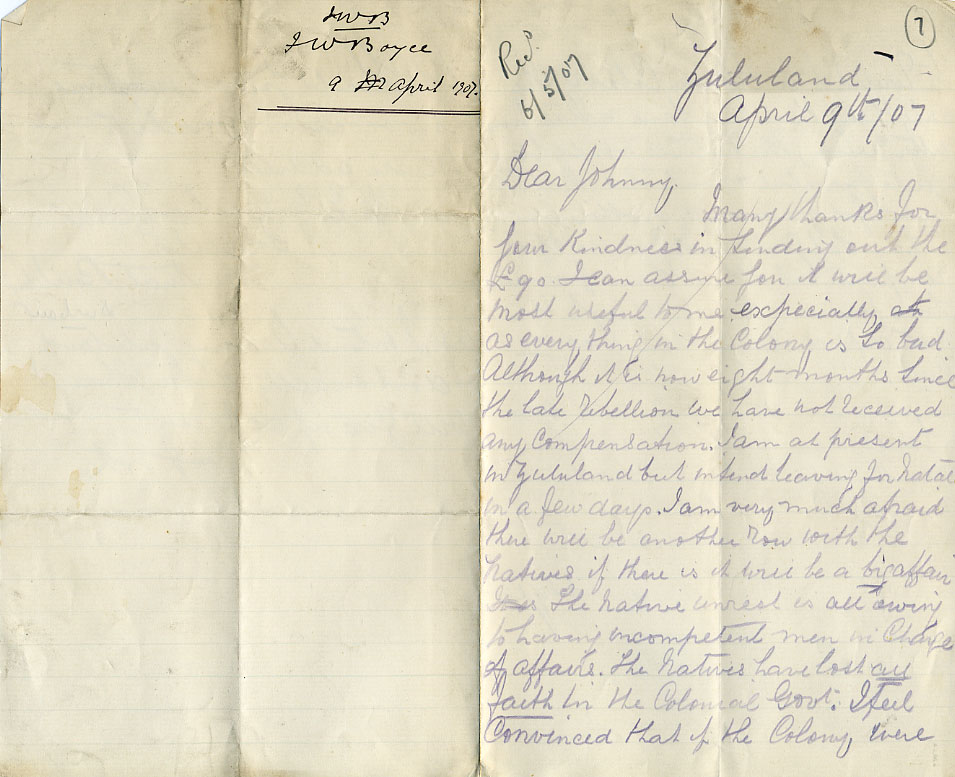 JWB
JWBoyce
9 April 1907.
7
Recd
6/5/07
Zululand
April 9th/07
Dear Johnny,
Many thanks for
your kindness in finding out the
£90. I can assure you it will be
most useful to me especially
as every thing in the Colony is so bad.
Although it is now eight months since
the late rebellion we have not received
any Compensation. I am at present
in Zululand but intend leaving for Natal
in a few days. I am very much afraid
there will be another row with the
Natives if there is it will be a big affair
The Native unrest is all owing
to having incompetent men in Charge
of affairs. The Natives have lost all
faith in the Colonial Govt. I feel
Convinced that if the Colony were